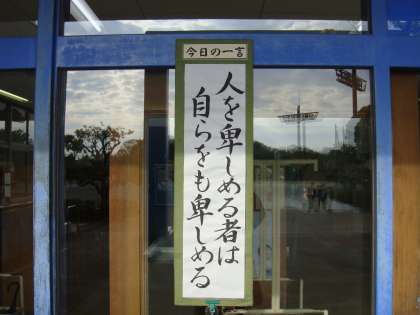 今日の一言
人を卑しめる者は
自らをも卑しめる